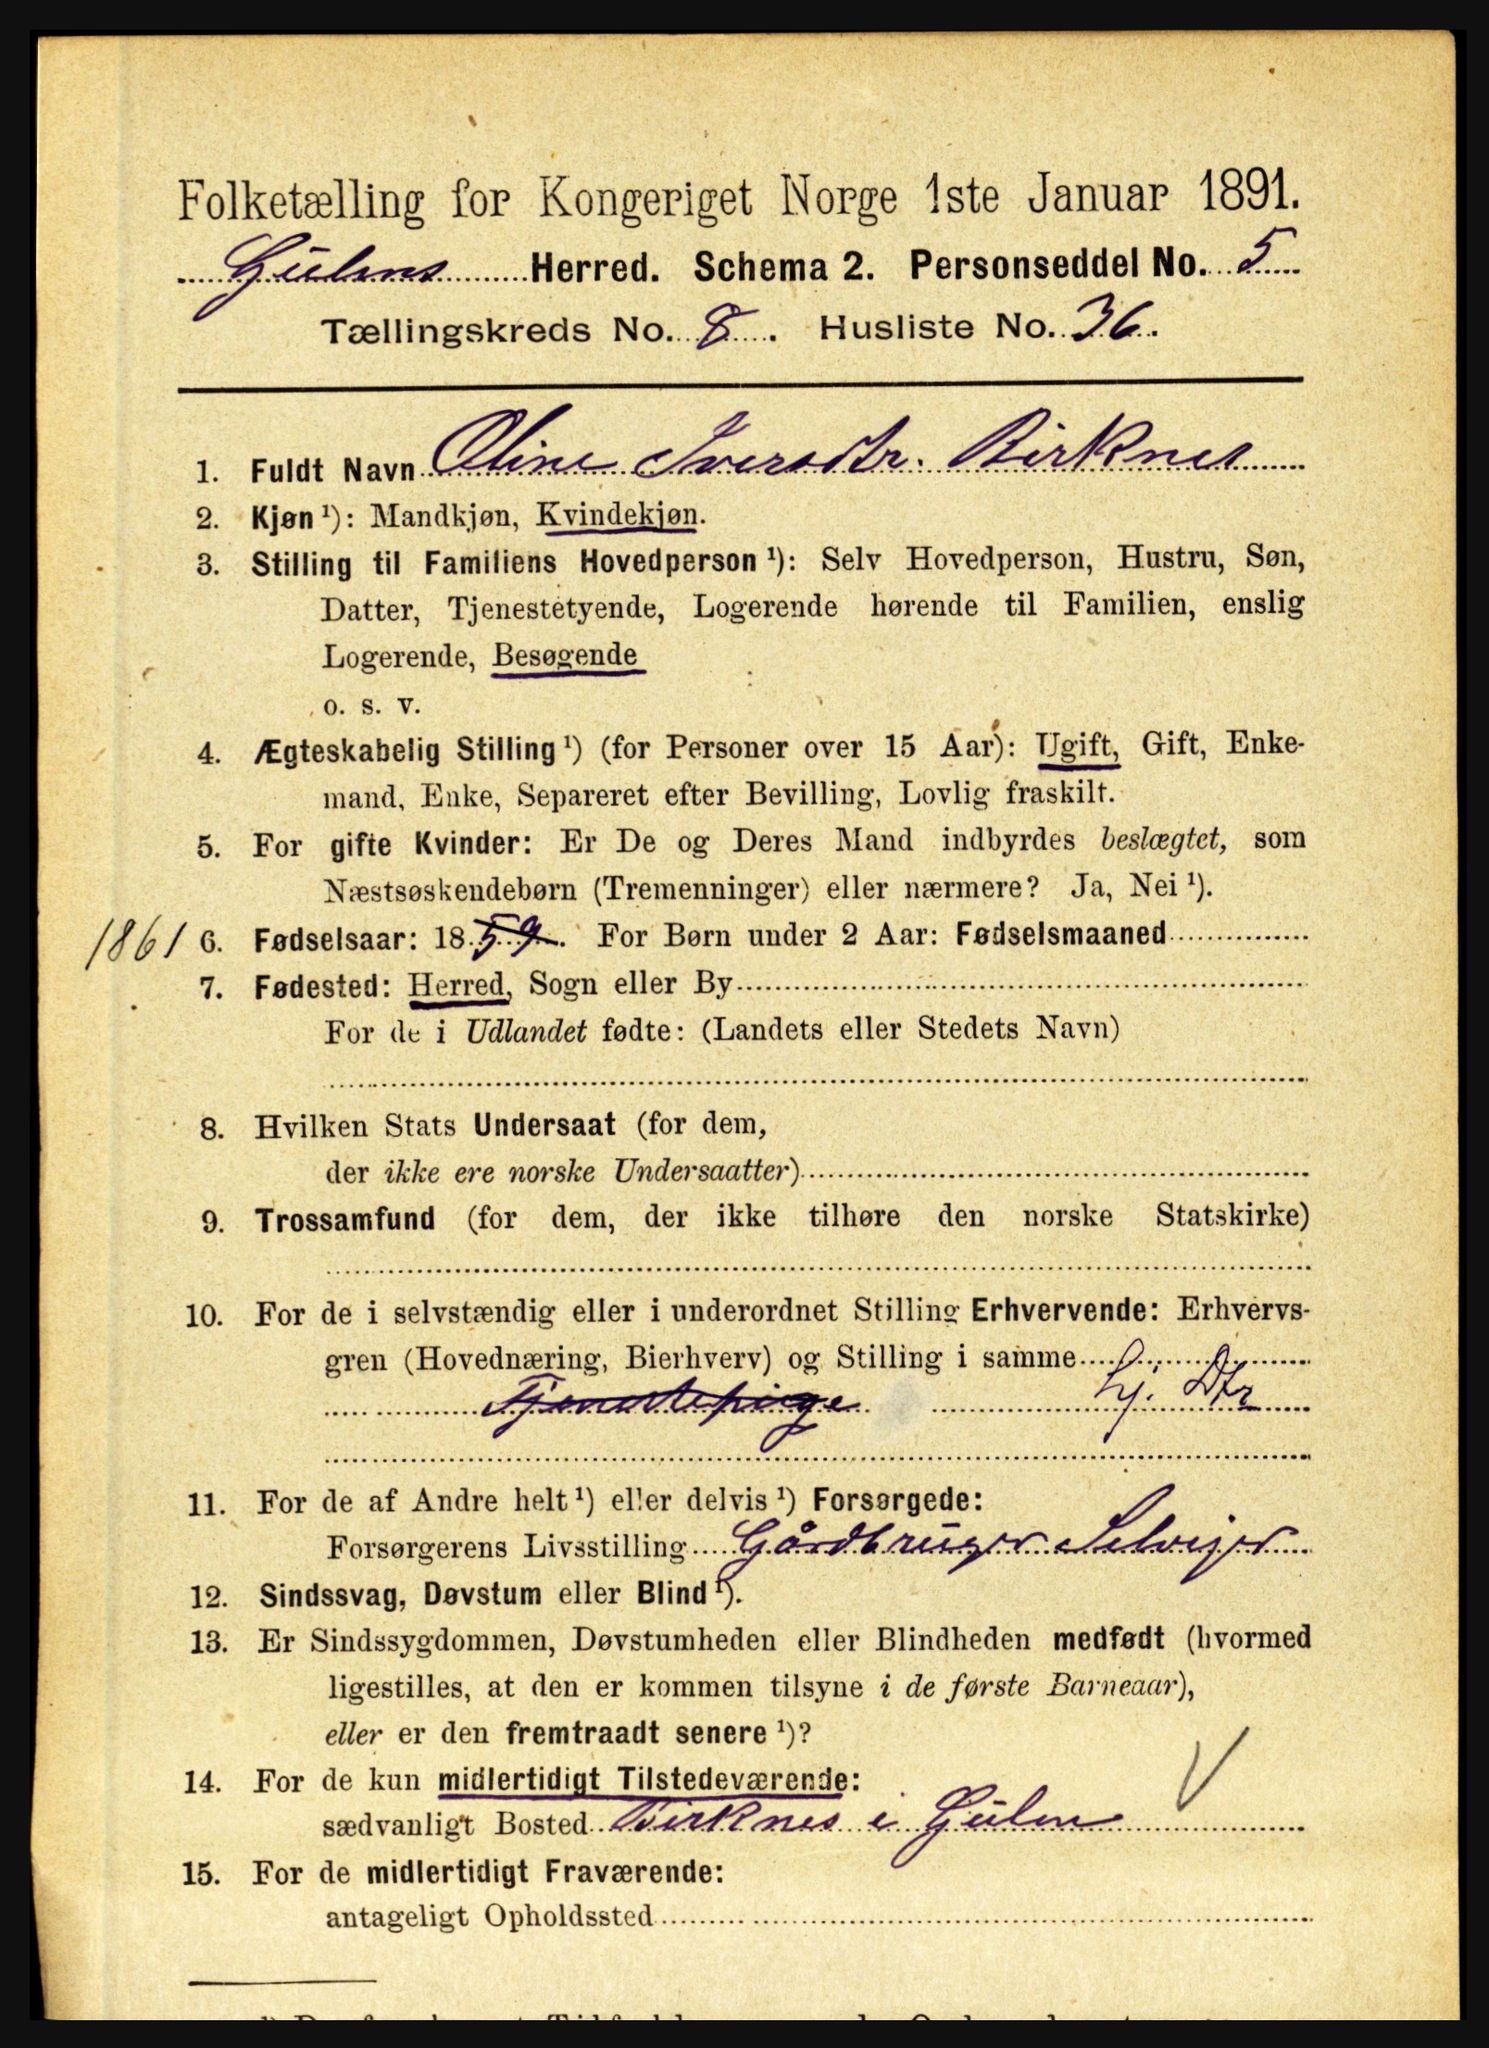 Folketælling for Kongeriget Norge 1ste Januar 1891.
Gulens Herred. Schema 2. Personseddel No. 5
Tællingskreds No. 8. Husliste No. 36.
1. Fuldt Navn Oline Iversdtr. Birknes
2. Kjøn ¹): Mandkjøn, Kvindekjøn.
3. Stilling til Familiens Hovedperson ¹): Selv Hovedperson, Hustru, Søn,
Datter, Tjenestetyende, Logerende hørende til Familien, enslig
Logerende, Besøgende
o. s. v.
4. Ægteskabelig Stilling ¹) (for Personer over 15 Aar): Ugift, Gift, Enke-
mand, Enke, Separeret efter Bevilling, Lovlig fraskilt.
5. For gifte Kvinder: Er De og Deres Mand indbyrdes beslægtet, som
Næstsøskendebørn (Tremenninger) eller nærmere? Ja, Nei ¹).
1861 6. Fødselsaar: 1859. For Børn under 2 Aar: Fødselsmaaned
7. Fødested: Herred, Sogn eller By
For de i Udlandet fødte: (Landets eller Stedets Navn)
8. Hvilken Stats Undersaat (for dem,
der ikke ere norske Undersaatter)
9. Trossamfund (for dem, der ikke tilhøre den norske Statskirke)
10. For de i selvstændig eller i underordnet Stilling Erhvervende: Erhvervs-
gren (Hovednæring, Bierhverv) og Stilling i samme
Tjenestepige Dtr
11. For de af Andre helt ¹) eller delvis ¹) Forsørgede:
Forsørgerens Livsstilling Gårdbruger Selvejer
12. Sindssvag, Døvstum eller Blind ¹).
13. Er Sindssygdommen, Døvstumheden eller Blindheden medfødt (hvormed
ligestilles, at den er kommen tilsyne i de første Barneaar),
eller er den fremtraadt senere ¹)?
14. For de kun midlertidigt Tilstedeværende:
sædvanligt Bosted Birknes i Gulen
15. For de midlertidigt Fraværende:
antageligt Opholdssted